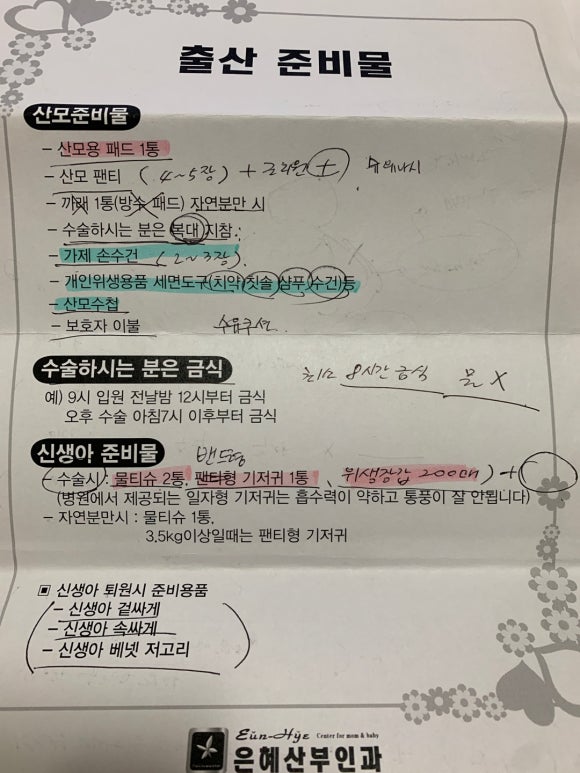 출산 준비물
산모준비물
- 산모용 패드 1통
- 산모 팬티 (4~5장) +
- 깨 1통(방수 패드) 자연분만 시
- 수술하시는 분은 복대 지참.
- 가제 손수건 (2~3장)
- 개인위생용품 세면도구(치약)칫솔 샴푸 수건)등
- 산모수첩
- 보호자 이불 수유쿠션
수술하시는 분은 금식 최소 8시간 금식 물 X
예) 9시 입원 전날밤 12시부터 금식
오후 수술 아침7시 이후부터 금식
신생아 준비물 밴드형
- 수술시 : 물티슈 2통. 팬티형 기저귀 1통, 위생장갑 200매) +
(병원에서 제공되는 일자형 기저귀는 흡수력이 약하고 통풍이 잘 안됩니다)
- 자연분만시 : 물티슈 1통.
3.5kg이상일때는 팬티형 기저귀
▣ 신생아 퇴원시 준비용품
- 신생아 겉싸게
- 신생아 속싸게
- 신생아 베넷 저고리
Eün-Hÿe Center for mom & baby
은혜산부인과